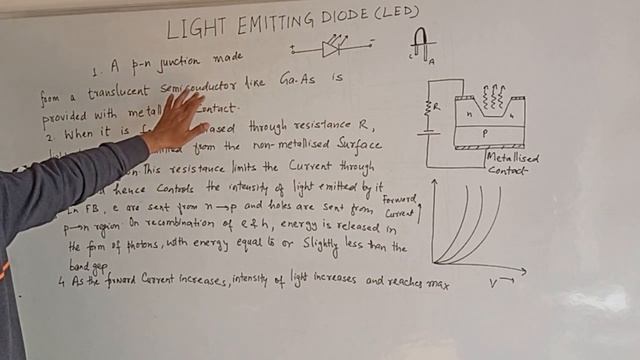 LIGHT EMITTING DIODE (LED)
1. A p-n junction made
from a translucent semiconductor like Ga-As is
provided with metall contact.
2. When it is ased through resistance R,
from the non-metallised Surface
This resistance limits the Current through
hence controls the intensity of light emitted by it
In FB, e are sent from n→p and holes are sent from
p→n region On recombination of e & h, energy is released in
the form of photons, with energy equal to or Slightly less than the
band gap
4 As the forward Current increases, intensity of light increases and reaches max
+
-
C
A
R
n
n
P
Metallised
Contact
Forward
Current ↑
V →